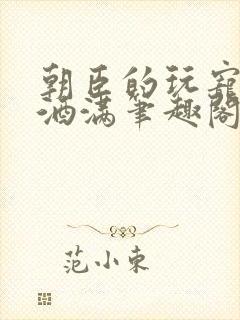 朝臣的玩宠
酒满笔趣阁
范小东